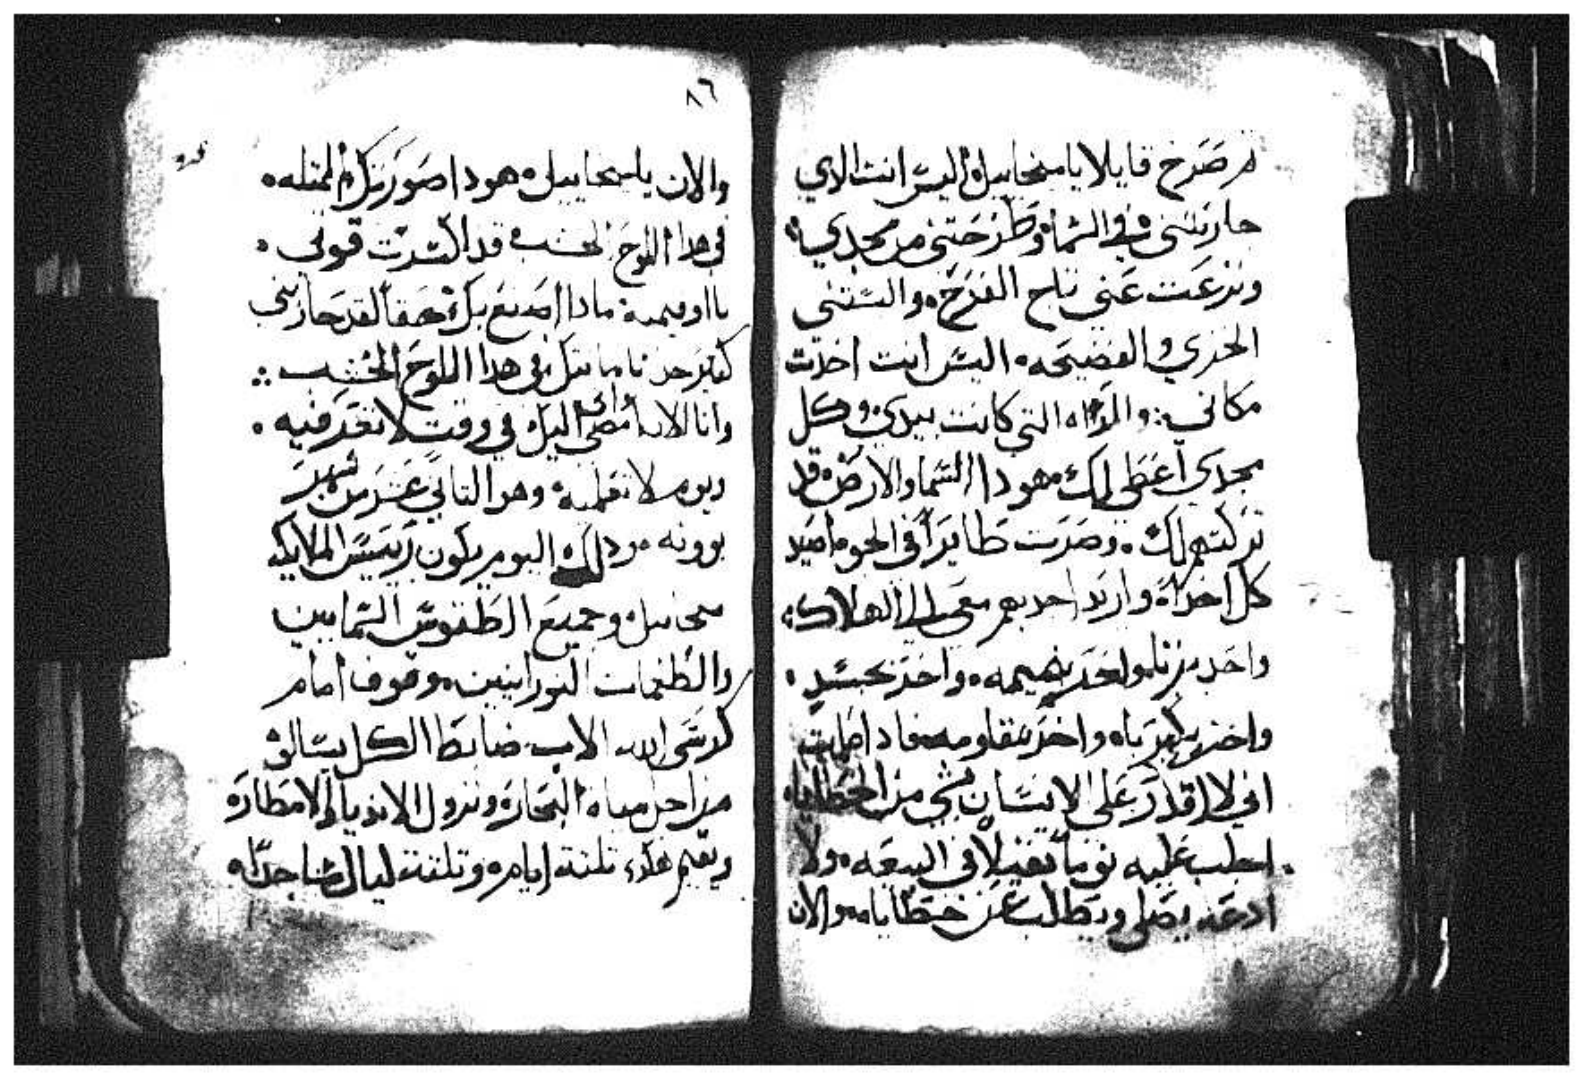 ثم صرخ قايلا يا ميخاييل اليس انت الدي
حاربتنى في السما وطرحتنى من مجدي
ونزعت عنى تاج الفرح والبستنى
الخزي والفضيحه اليس انت اخدت
مكانى والمراه التي كانت بيدي وكل
مجدي اعطى لك هودا السما والارض قد
تركتهم لك وصرت طايرا في الجو اصيد
كل احدا واريد احدبهم معى الى الهلاك
واحد بزنا واخد بنميمه واخر بحسد
واخر بكبرياه واخر بمقاومه فادا اصابت
انى لا اقدر على الانسان بشى من الخطايا
اجلب عليه نوما تقيلا في البيعه ولا
ادعه يصلى ويطلب عن خطاياه والان
٨٦
والان يا ميخاييل هودا صورتك الممتله
في هدا اللوح الخشب قد اكسرت قوتى
يا اوفيميه مادا اصنع بك حقا لقد حاربنى
كتير جدا ما مابتل في هدا اللوح الخشب
وانا الان امضى واتى اليك في وقت لا تعرفيه
ويوم لا تعلميه وهو التانى عشر من شهر
بوونه ودلك اليوم يكون رييس الملايكه
ميخاييل وجميع الطقوس السماييين
والطغمات النورانيين وقوف امام
كرسى الله الاب ضابط الكل يسالو
من اجل مياه البحار ونزول الانديا والامطار
ويقيم هكدا تلتة ايام وتلتة ليال ساجدا